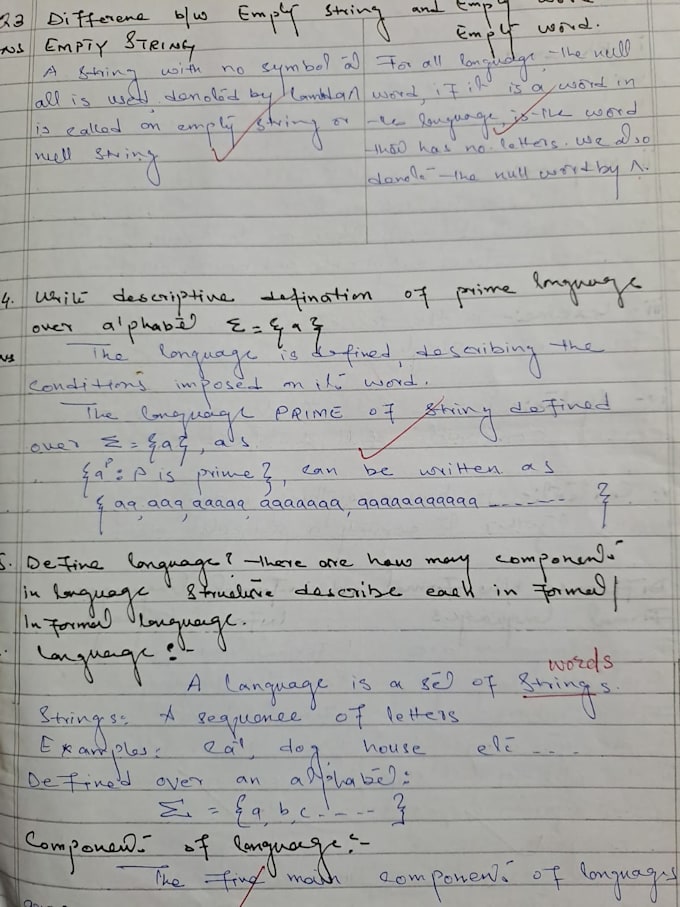 23 Difference b/w Empty String and Empty word
Empty word.
Ans EMPTY STRING
A string with no symbol at
all is used denoted by lambda Λ
is called an empty string or
null string
For all language, the null
word, if it is a word in
the language, is the word
that has no letters. we also
denote the null word by Λ.
4. Write descriptive defination of prime language
over alphabet Σ = {a}
Ans The language is defined, describing the
conditions imposed on its word.
The language PRIME of string defined
over Σ = {a}, as
{aᵖ : P is prime}, can be written as
{ aa, aaa, aaaaa, aaaaaaa, aaaaaaaaaaa ....... }
5. Define language? there are how many components
in language structure describe each in Formal /
InFormal language.
language :-
words
A language is a set of strings.
Strings: A sequence of letters
Examples: Cat, dog house etc ....
Defined over an alphabet:
Σ = {a, b, c ..... }
Components of language :-
The five main components of languages